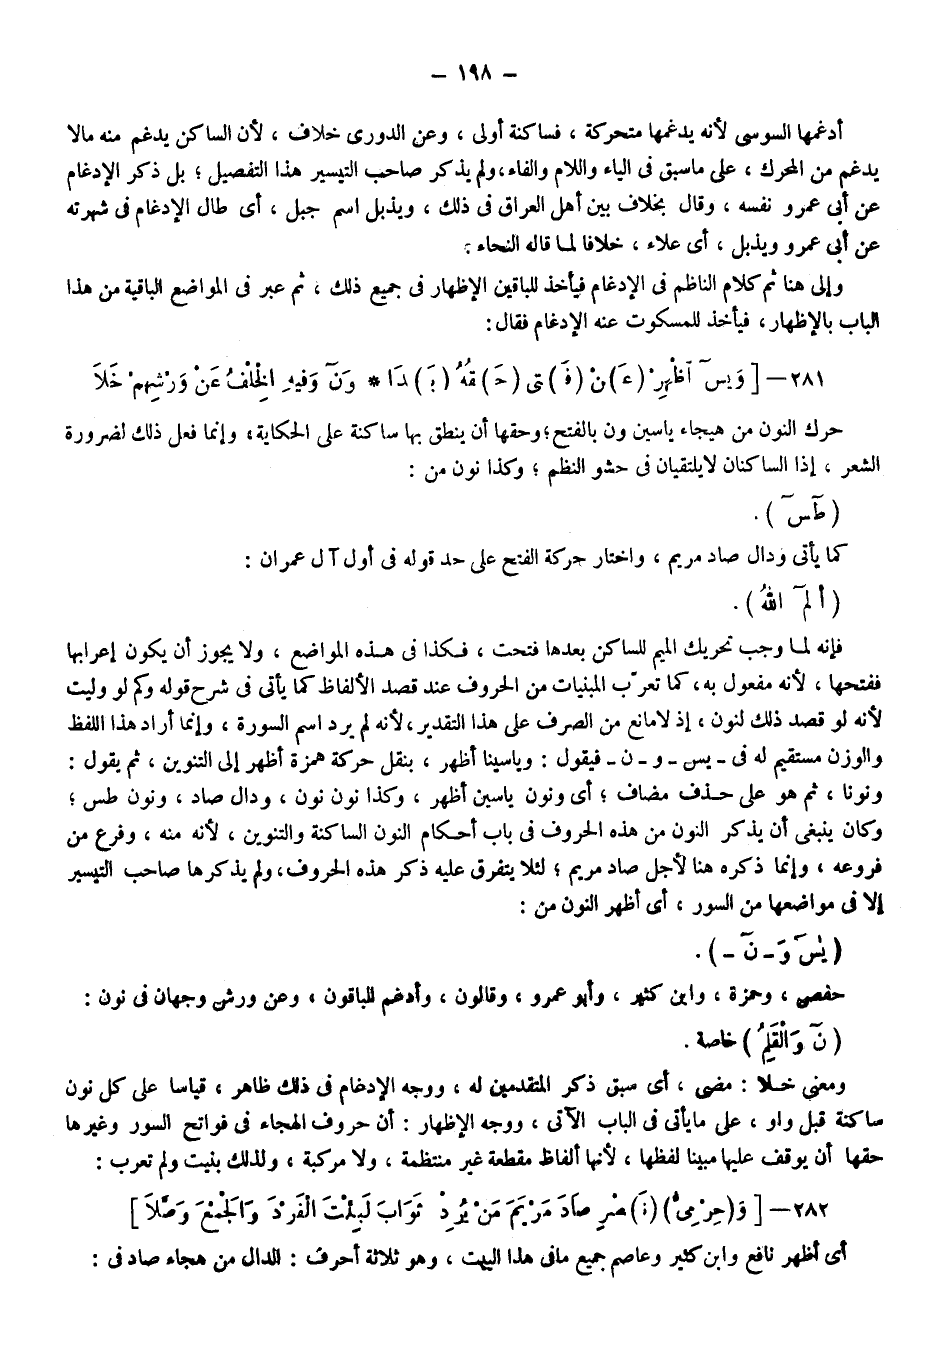 – ١٩٨ –
أدغمها السوسى لأنه يدغمها متحركة ، فساكنة أولى ، وعن الدورى خلاف ، لأن الساكن يدغم منه مالا
يدغم من المحرك ، على ماسبق فى الياء واللام والفاء،ولم يذكر صاحب التيسير هذا التفصيل ؛ بل ذكر الإدغام
عن أبى عمرو نفسه ، وقال بخلاف بين أهل العراق فى ذلك ، ويذبل اسم جبل ، أى طال الإدغام فى شهرته
عن أبى عمرو ويذبل ، أى علاء ، خلافا لما قاله النحاء :
وإلى هنا تم كلام الناظم فى الإدغام فيأخذ للباقين الإظهار فى جميع ذلك ، ثم عبر فى المواضع الباقية من هذا
الباب بالإظهار، فيأخذ للمسكوت عنه الإدغام فقال:
٢٨١–[ وَيسٓ اَظْهِرْ (عَ)نْ (فَ)تى (حَ)قُّهُ (بَ)دَا * وَنٓ وَفِيهِ الْخُلْفُ عَنْ وَرْشِهِمْ خَلاَ
حرك النون من هيجاء ياسين ون بالفتح؛وحقها أن ينطق بها ساكنة على الحكاية، وإنما فعل ذلك لضرورة
الشعر ، إذا الساكنان لايلتقيان فى حشو النظم ؛ وكذا نون من :
( طٓسٓ ) .
كما يأتى ودال صاد مريم ، واختار حركة الفتح على حد قوله فى أول آل عمران :
( أ لمٓ اللهُ ) .
فإنه لما وجب تحريك الميم للساكن بعدها فتحت ، فكذا فى هذه المواضع ، ولا يجوز أن يكون إعرابها
ففتحها ، لأنه مفعول به، كما تعرّب المبنيات من الحروف عند قصد الألفاظ كما يأتى فى شرح قوله وكم لو وليت
لأنه لو قصد ذلك لنون ، إذ لامانع من الصرف على هذا التقدير،لأنه لم يرد اسم السورة ، وإنما أراد هذا اللفظ
والوزن مستقيم له فى ـ يس ـ و ـ ن ـ فيقول : وياسينا أظهر ، بنقل حركة همزة أظهر إلى التنوين ، ثم يقول :
ونونا ، ثم هو على حذف مضاف ؛ أى ونون ياسين أظهر ، وكذا نون نون ، ودال صاد ، ونون طس ؛
وكان ينبغى أن يذكر النون من هذه الحروف فى باب أحكام النون الساكنة والتنوين ، لأنه منه ، وفرع من
فروعه ، وإنما ذكره هنا لأجل صاد مريم ؛ لئلا يتفرق عليه ذكر هذه الحروف،ولم يذكرها صاحب التيسير
إلا فى مواضعها من السور ، أى أظهر النون من :
( يٰسٓ وَ ـ نٓ ـ ) .
حفص ، وحمزة ، وابن كثير ، وأبو عمرو ، وقالون ، وأدغم للباقون ، وعن ورش وجهان فى نون :
( نٓ وَالْقَلَمِ ) خاصة .
ومعنى خلا : مضى ، أى سبق ذكر المتقدمين له ، ووجه الإدغام فى ذلك ظاهر ، قياسا على كل نون
ساكنة قبل واو ، على مايأتى فى الباب الآتى ، ووجه الإظهار : أن حروف الهجاء فى فواتح السور وغيرها
حقها أن يوقف عليها مبينا لفظها ، لأنها ألفاظ مقطعة غير منتظمة ، ولا مركبة ، ولذلك بنيت ولم تعرب :
٢٨٢–[ وَ(حِرْمِىُّ) (نَ)صْرٍ صَادَ مَرْيَمَ مَنْ يُرِدْ ثَوَابَ لَبِثْتَ الْفَرْدَ وَالْجَمْعَ وَصَّلاَ ]
أى أظهر نافع وابن كثير وعاصم جميع مافى هذا البيت ، وهو ثلاثة أحرف : الدال من هجاء صاد فى :